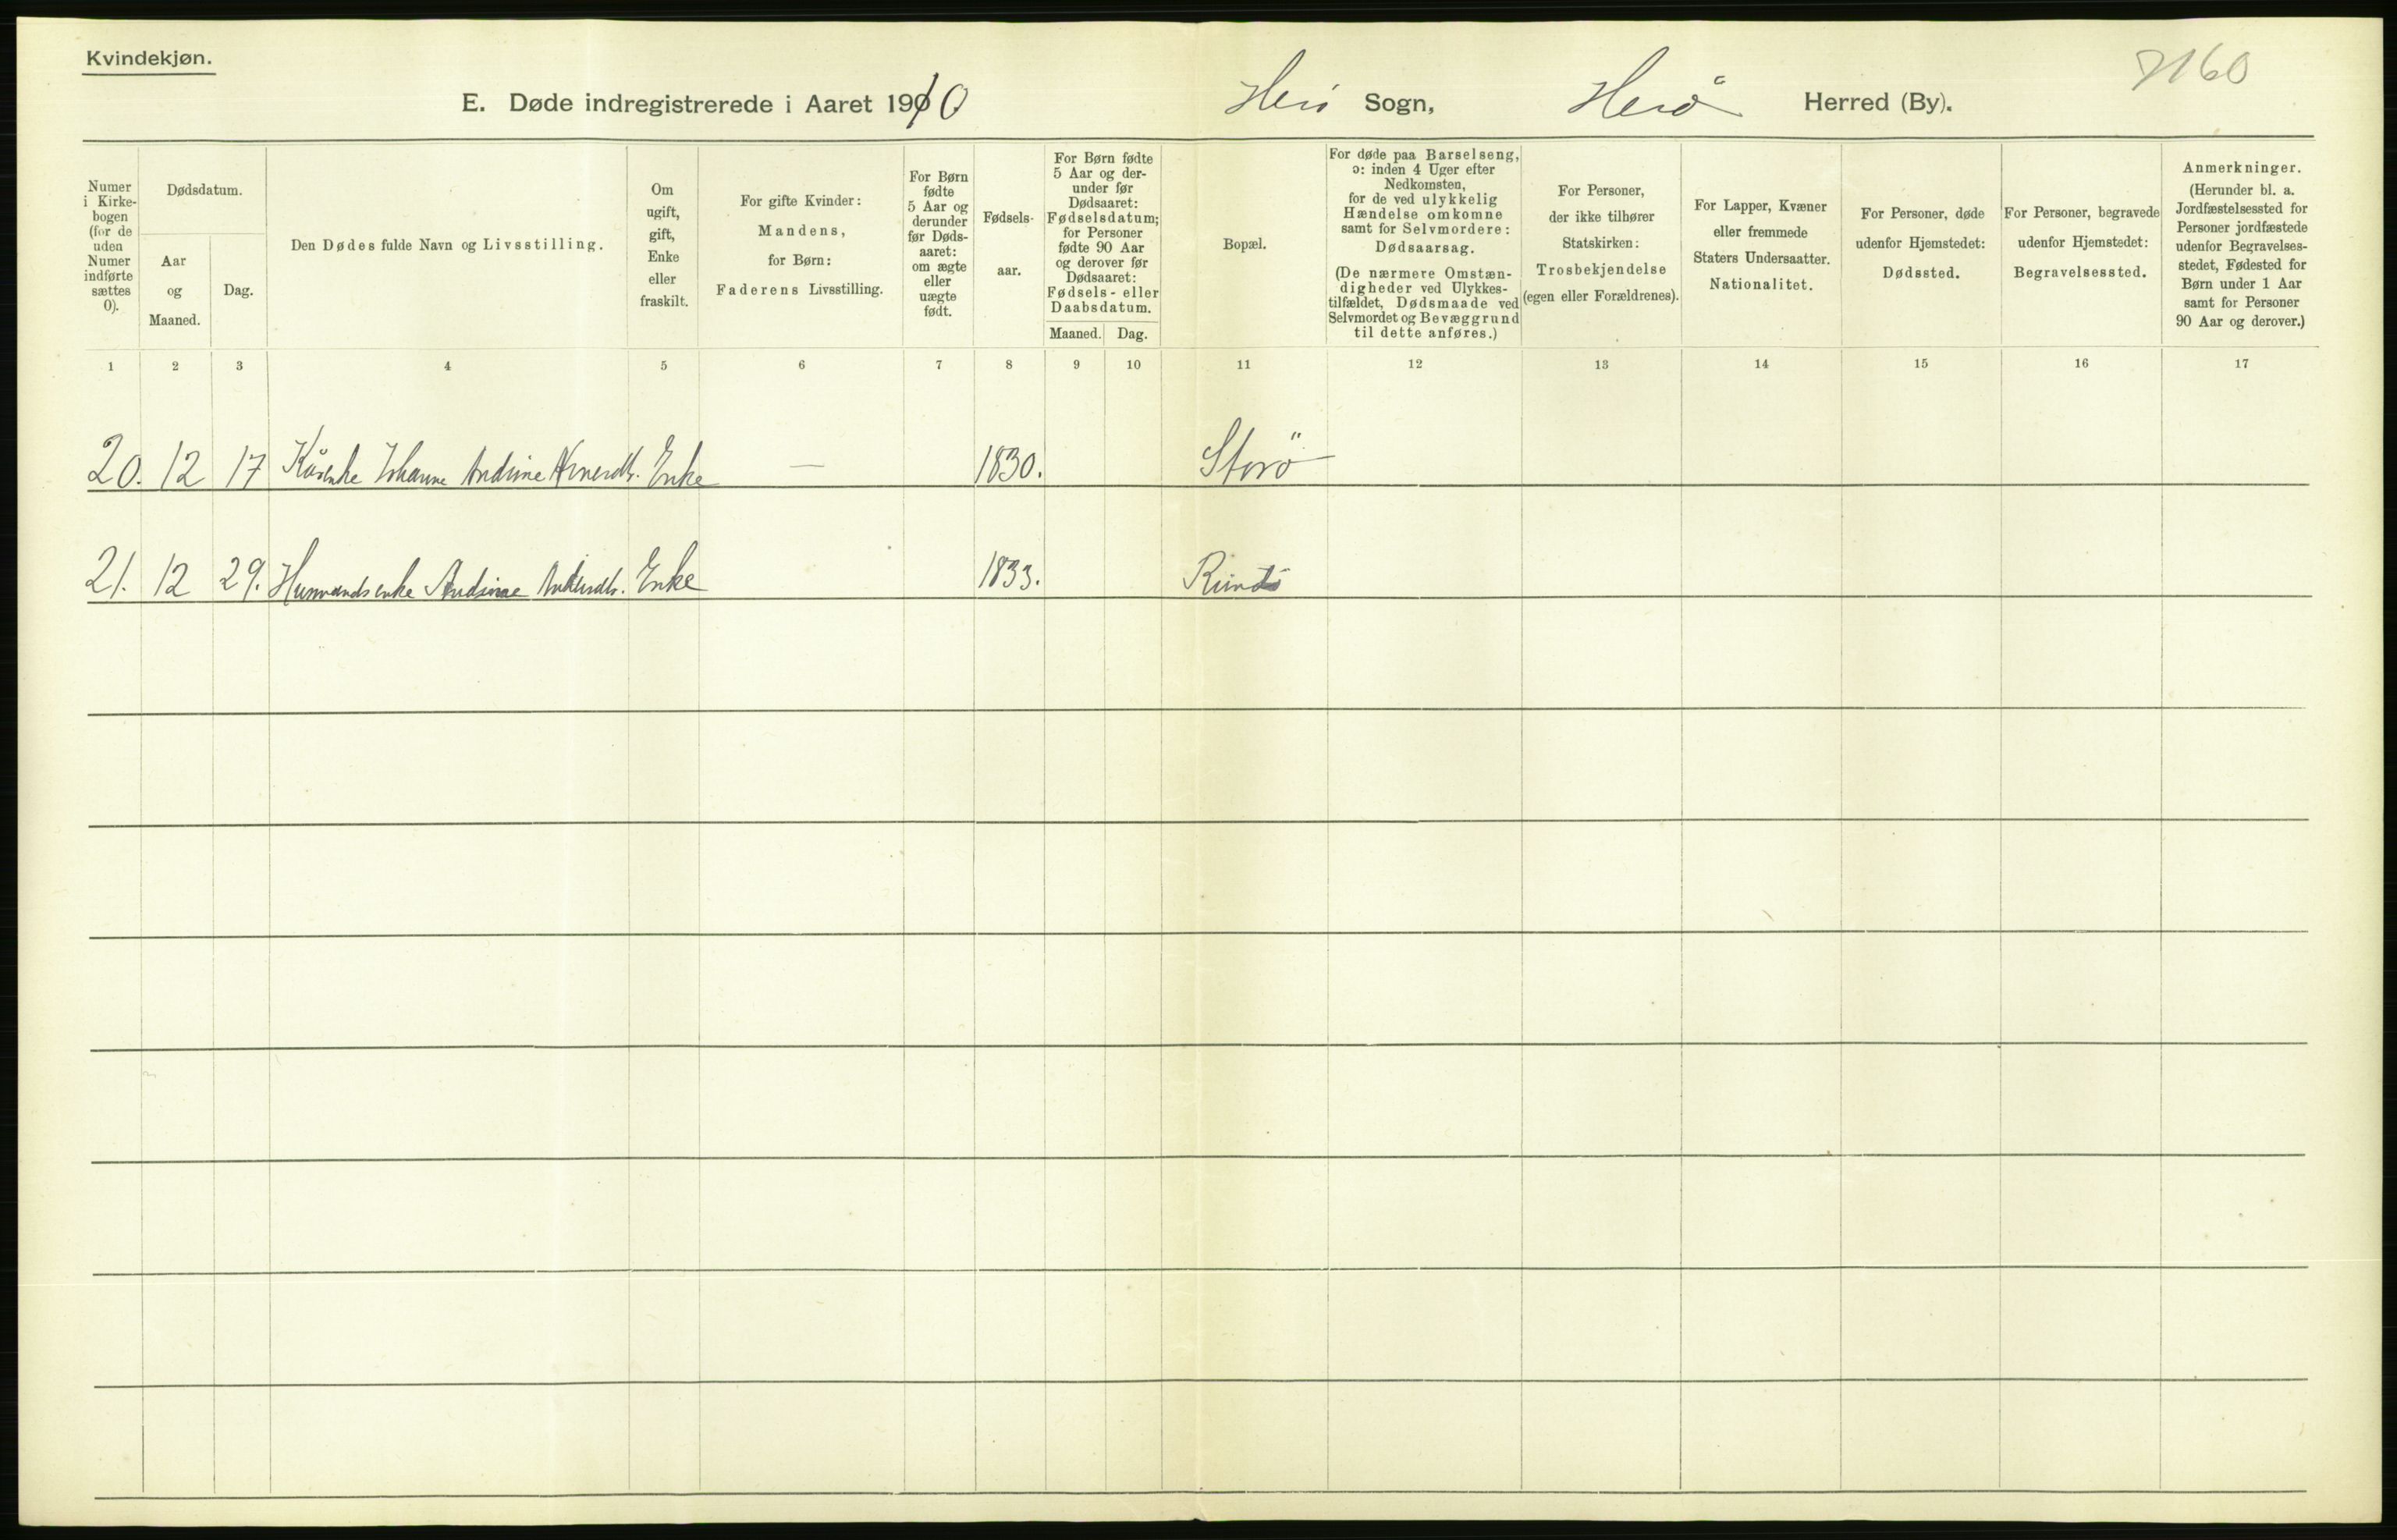 Kvindekjøn.
7160
E. Døde indregistrerede i Aaret 1910 Herö Sogn, Herö Herred (By).
Numer i Kirkebogen (for de uden Numer indførte sættes 0).
Dødsdatum.
Aar og Maaned.
Dag.
Den Dødes fulde Navn og Livsstilling.
Om ugift, gift, Enke eller fraskilt.
For gifte Kvinder: Mandens, for Børn: Faderens Livsstilling.
For Børn fødte 5 Aar og derunder før Dødsaaret: om ægte eller uægte født.
Fødselsaar.
For Børn fødte 5 Aar og derunder før Dødsaaret: Fødselsdatum; for Personer fødte 90 Aar og derover før Dødsaaret: Fødsels- eller Daabsdatum.
Maaned. Dag.
Bopæl.
For døde paa Barselseng, ɔ: inden 4 Uger efter Nedkomsten, for de ved ulykkelig Hændelse omkomne samt for Selvmordere: Dødsaarsag. (De nærmere Omstændigheder ved Ulykkestilfældet, Dødsmaade ved Selvmordet og Bevæggrund til dette anføres.)
For Personer, der ikke tilhører Statskirken: Trosbekjendelse (egen eller Forældrenes).
For Lapper, Kvæner eller fremmede Staters Undersaatter. Nationalitet.
For Personer, døde udenfor Hjemstedet: Dødssted.
For Personer, begravede udenfor Hjemstedet: Begravelsessted.
Anmerkninger. (Herunder bl. a. Jordfæstelsessted for Personer jordfæstede udenfor Begravelsesstedet, Fødested for Børn under 1 Aar samt for Personer 90 Aar og derover.)
1 2 3 4 5 6 7 8 9 10 11 12 13 14 15 16 17
20. 12 17 Johanne Andrine Enke — 1830. Storö
21. 12 29. Husmandsenke Andrine Enke 1833.